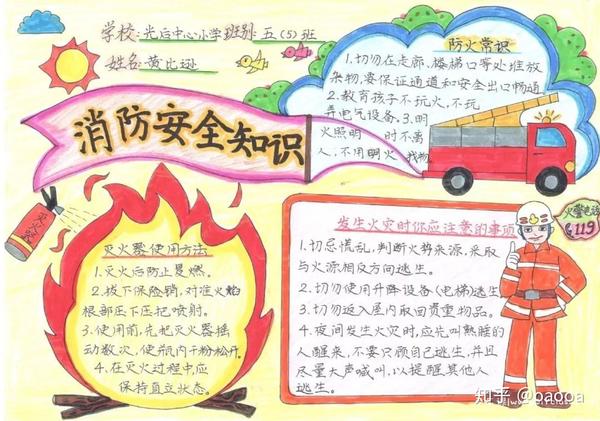 学校:光后中心小学 班别:五(5)班
姓名:黄比逊
消防安全知识
防火常识
1.切勿在走廊、楼梯口等处堆放
杂物,要保证通道和安全出口畅通
2.教育孩子不玩火,不玩
弄电气设备。3.明
火照明 时不离
人,不用明火 找物
灭火器
灭火器使用方法
1.灭火后防止复燃。
2.拔下保险销,对准火焰
根部压下压把喷射。
3.使用前,先把灭火器摇
动数次,使瓶内干粉松开。
4.在灭火过程中应
保持直立状态。
发生火灾时你应注意的事项
1.切忌慌乱,判断火势来源,采取
与火源相反方向逃生。
2.切勿使用升降设备(电梯)逃生
3.切勿返入屋内取回贵重物品。
4.夜间发生火灾时,应先叫熟睡的
人醒来,不要只顾自己逃生,并且
尽量大声喊叫,以提醒其他人
逃生。
火警电话
119
知乎 @oaooa